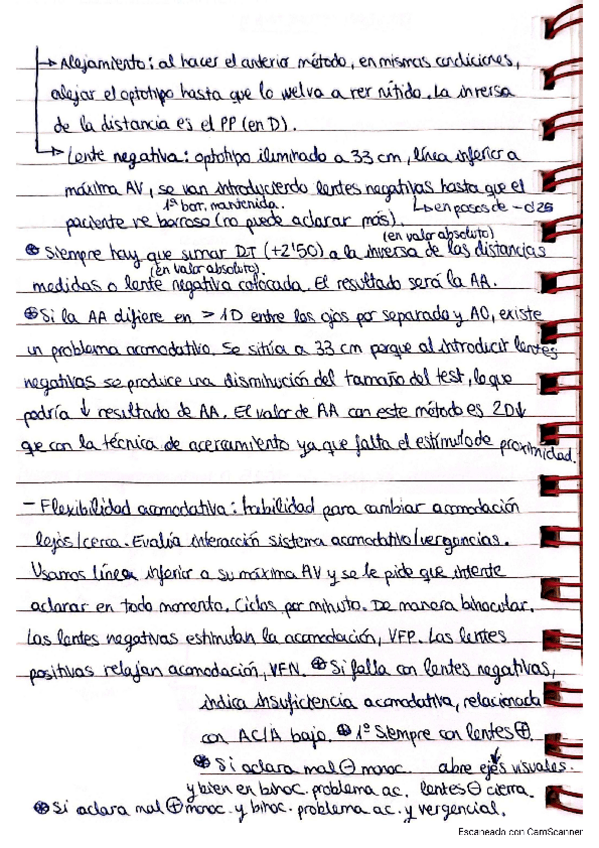 → Alejamiento: al hacer el anterior método, en mismas condiciones,
alejar el optotipo hasta que lo vuelva a ver nítido. La inversa
de la distancia es el PP (en D).
→ Lente negativa: optotipo iluminado a 33 cm, línea inferior a
máxima AV, se van introduciendo lentes negativas hasta que el
1ª bor. mantenida. ↳ en pasos de -0'25
paciente ve borroso (no puede aclarar más).
(en valor absoluto)
⊛ Siempre hay que sumar DT (+2'50) a la inversa de las distancias
(en valor absoluto).
medidas o lente negativa colocada. El resultado será la AA.
⊛ Si la AA difiere en > 1D entre los ojos por separado y AO, existe
un problema acomodativo. Se sitúa a 33 cm porque al introducir lentes
negativas se produce una disminución del tamaño del test, lo que
podría ↓ resultado de AA. El valor de AA con este método es 2D↓
que con la técnica de acercamiento ya que falta el estímulo de proximidad.
- Flexibilidad acomodativa: habilidad para cambiar acomodación
lejos/cerca. Evalúa interacción sistema acomodativo/vergencias.
Usamos línea inferior a su máxima AV y se le pide que intente
aclarar en todo momento. Ciclos por minuto. De manera binocular.
Las lentes negativas estimulan la acomodación, VFP. Las lentes
positivas relajan acomodación, VFN. ⊛ Si falla con lentes negativas,
indica insuficiencia acomodativa, relacionada
con AC/A bajo. ⊛ 1º Siempre con lentes ⊕.
⊛ Si aclara mal ⊖ monoc. abre ejes visuales.
y bien en binoc. problema ac. lentes ⊖ cierra.
⊛ Si aclara mal ⊕ monoc. y binoc. problema ac. y vergencial.
Escaneado con CamScanner